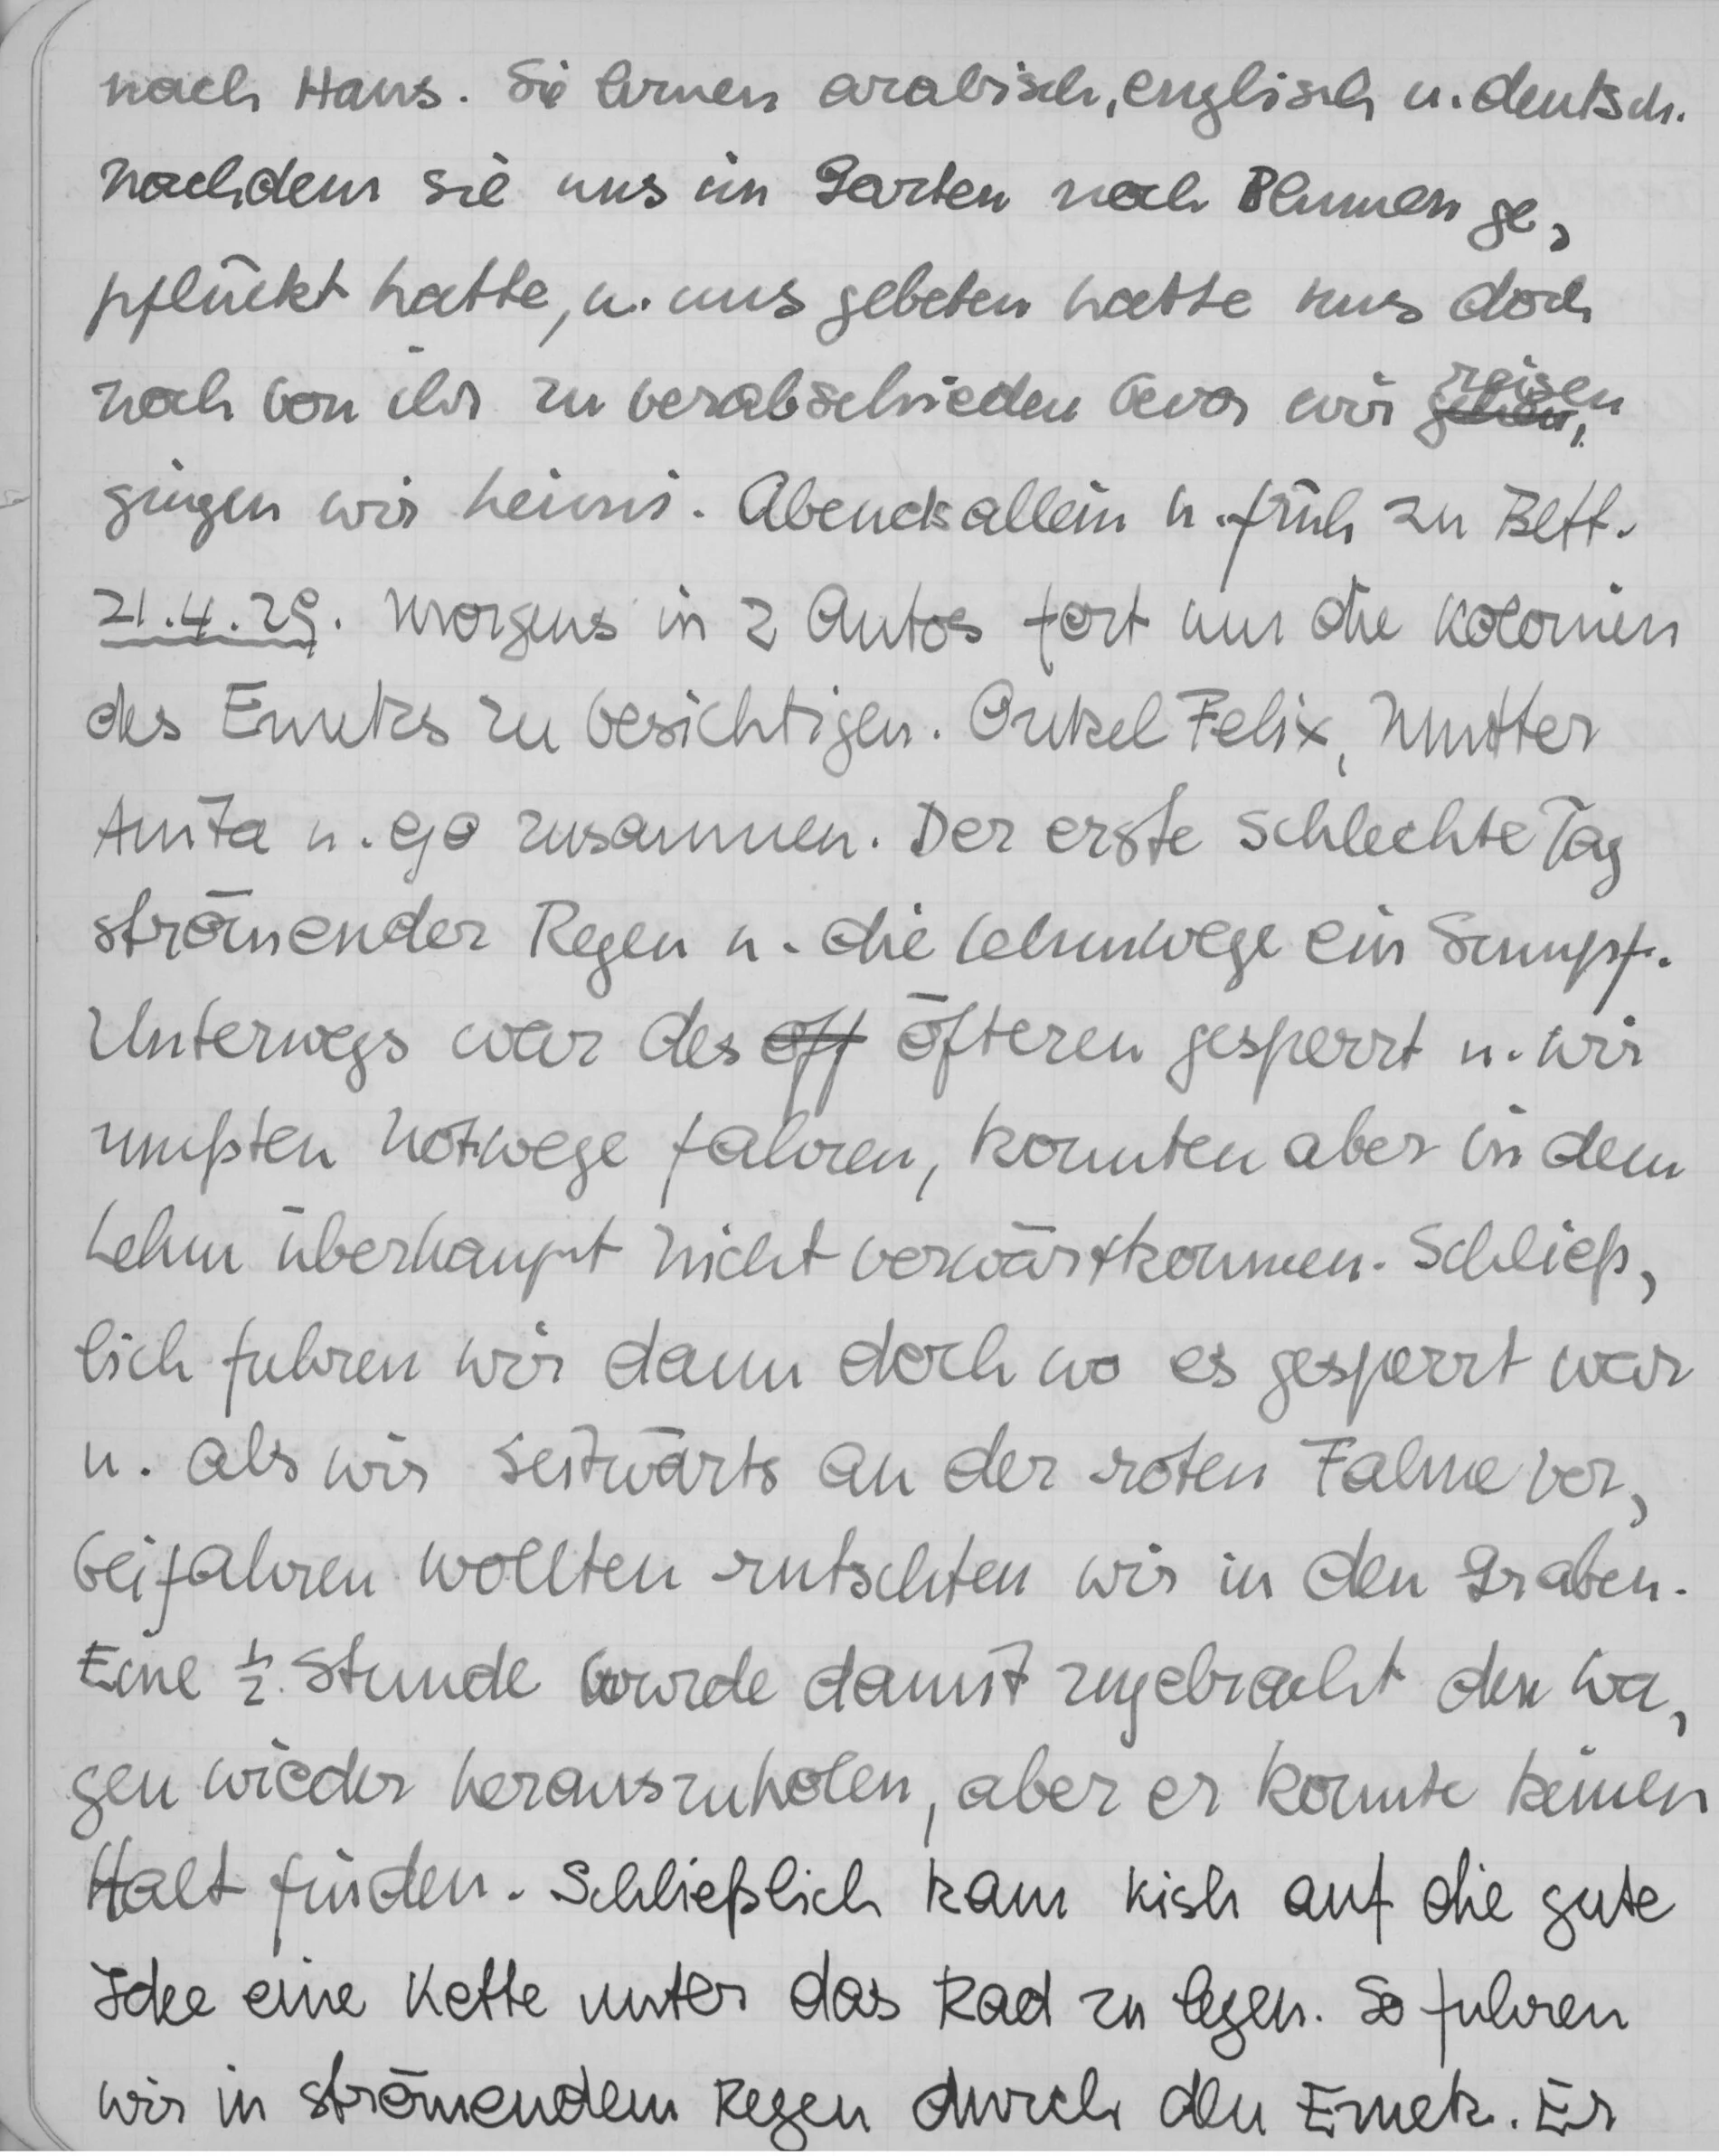 nach Haus. Sie lernen arabisch, englisch u. deutsch.
Nachdem sie uns im Garten noch Blumen ge,
pflückt hatte, u. uns gebeten hatte uns doch
noch von ihr zu verabschieden bevor wir gehen, reisen
gingen wir heim. Abends allein u. früh zu Bett.
21.4.29. Morgens in 2 Autos fort um die Kolonien
des Emeks zu besichtigen. Onkel Felix, Mutter
Anita u. ego zusammen. Der erste schlechte Tag
strömender Regen u. die Lehmwege ein Sumpf.
Unterwegs war des off öfteren gesperrt u. wir
mußten Notwege fahren, konnten aber in dem
Lehm überhaupt nicht vorwärtkommen. Schließ,
lich fuhren wir dann doch wo es gesperrt war
u. als wir seitwärts an der roten Fahne vor,
beifahren wollten rutschten wir in den Graben.
Eine ½ Stunde wurde damit zugebracht den Wa,
gen wieder herauszuholen, aber er konnte keinen
Halt finden. Schließlich kam Kish auf die gute
Idee eine Kette unter das Rad zu legen. So fuhren
wir in strömendem Regen durch den Emek. Er